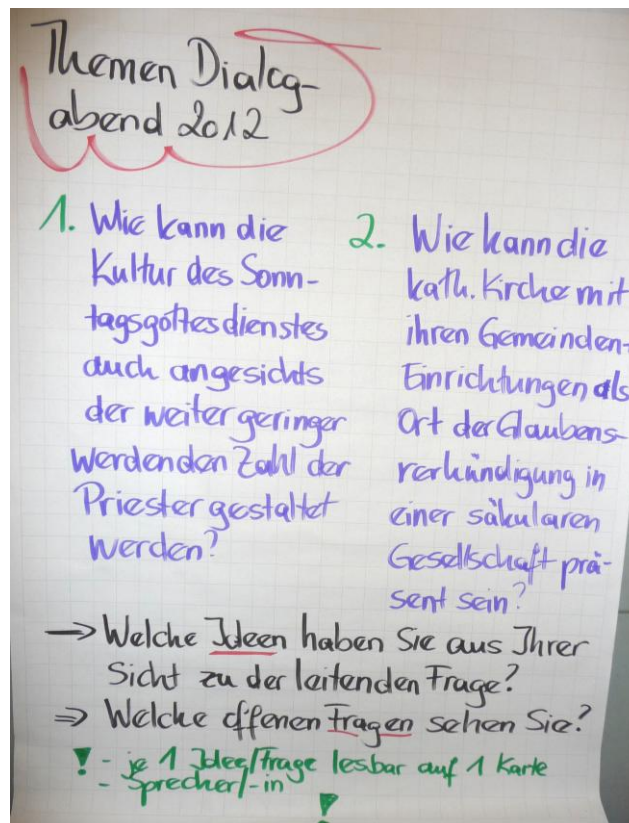 Themen Dialog-
abend 2012
1. Wie kann die
Kultur des Sonn-
tagsgottesdienstes
auch angesichts
der weiter geringer
werdenden Zahl der
Priester gestaltet
werden?
2. Wie kann die
kath. Kirche mit
ihren Gemeinden-
Einrichtungen als
Ort der Glaubens-
verkündigung in
einer säkularen
Gesellschaft prä-
sent sein?
→ Welche Ideen haben Sie aus Ihrer
Sicht zu der leitenden Frage?
⇒ Welche offenen Fragen sehen Sie?
! - je 1 Idee/Frage lesbar auf 1 Karte
- Sprecher/-in
!